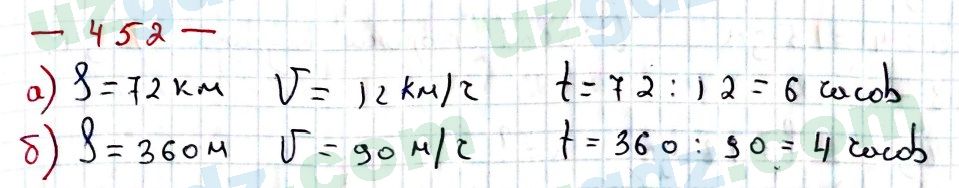 — 452 —
а) S = 72 км V = 12 км/ч t = 72 : 12 = 6 часов
б) S = 360 м V = 90 м/ч t = 360 : 90 = 4 часов